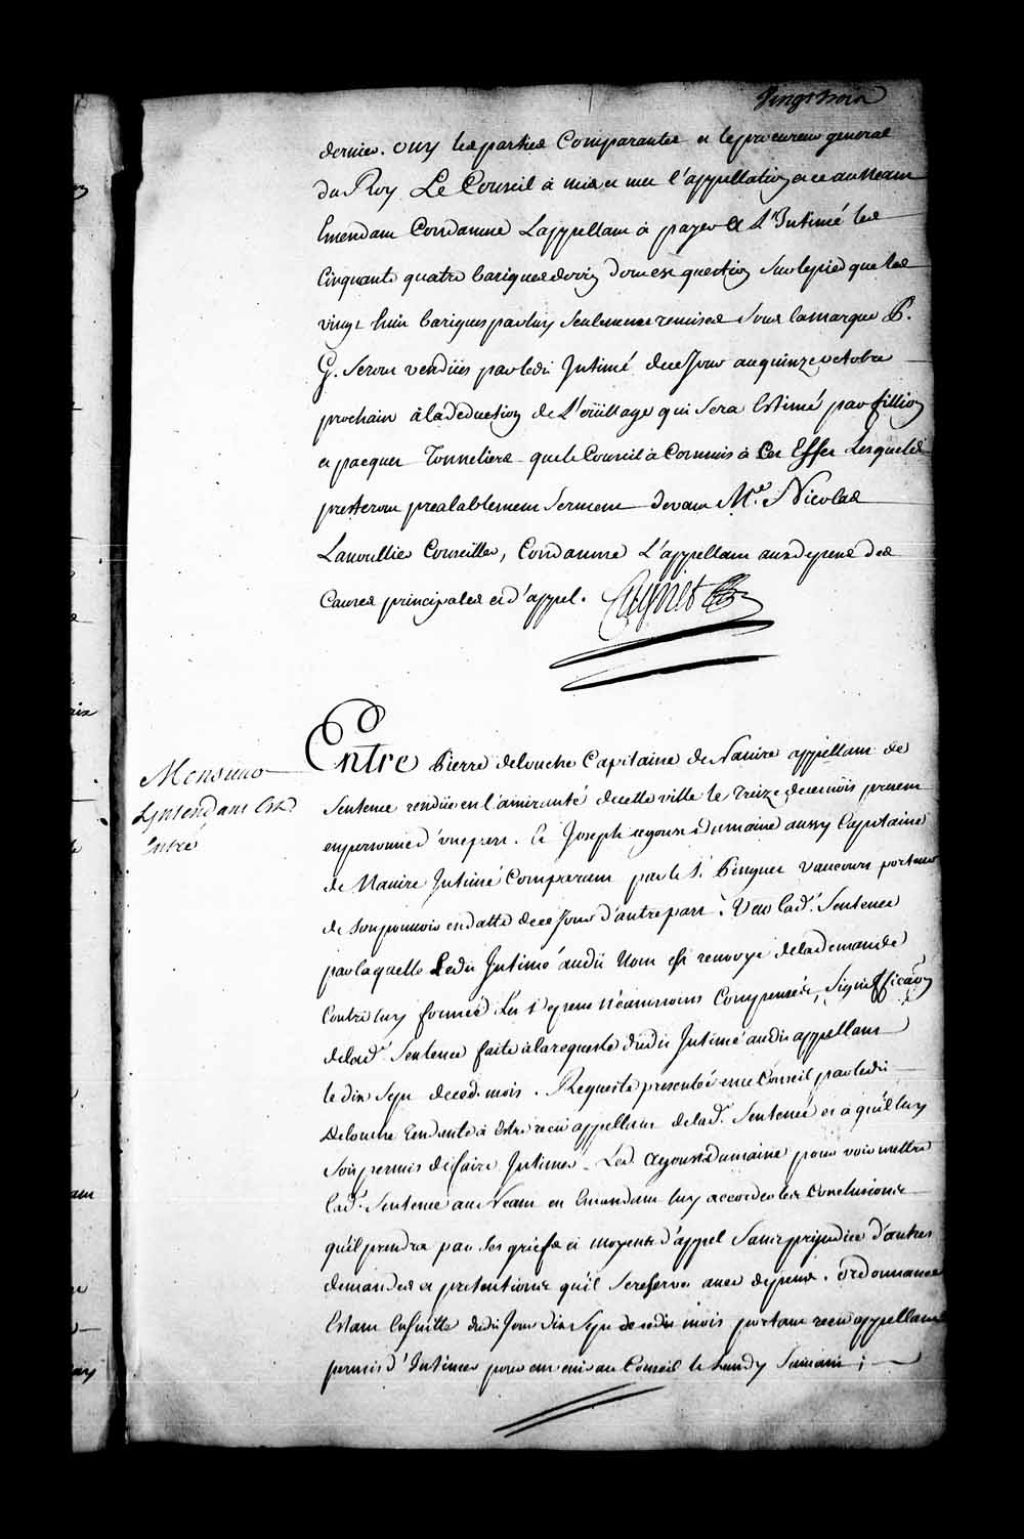 Vingt trois
dernier. ouy les parties Comparantes et le procureur general
du Roy Le Conseil a mis et met l'appellation et ce au Neant
Emendant Condamne L'appellant a payer a L'Intimé les
Cinquante quatre bariques de vin dont est question sur le pied que les
vingt huit bariques par luy seulement remises sous la marque P.
G. seront vendües par ledit Intimé de ce Jour au quinze octobre
prochain a la deduction de L'oüillage qui sera Estimé par fillion
et pacquet Tonneliers que le Conseil a Commis a Cet Effet Lesquels
presteront prealablement serment devant Me. Nicolas
Lanoullier Conseiller, Condamne L'appellant aux depens des
Causes principales et d'appel.
Entre Pierre delouche Capitaine de Navire appellant de
Monsieur
L'Intendant Est
Entré
Sentence rendüe en l'amirauté de cette ville le treize de ce mois present
en personne d'une part. Et Joseph dumaine aussy Capitaine
de Navire Intimé Comparant par le Sr. Pinguet Vaucour porteur
de son pouvoir en datte de ce Jour d'autre part. Veu lad. Sentence
par laquelle Ledit Intimé audit Nom est renvoyé de la demande
Contre luy formée Les depens Néanmoins Compensés, Signiffication
de lad. Sentence faite a la requeste dudit Intimé audit appellant
le dix Sept de ced. mois. Requeste presentée en ce Conseil par ledit
delouche tendante a Estre receu appellant de lad. Sentence et a qu'il luy
soit permis de faire Intimer Led. dumaine pour voir mettre
lad. Sentence au Neant en Emandant luy accorder les Conclusions
qu'il prendra par ses griefs et moyens d'appel sans prejudice d'autres
demandes et pretentions qu'il se reserve avec depens. ordonnance
Estant Ensuitte dudit Jour dix Sept dudit mois portant receu appellant
permis d'Intimer pour en venir au Conseil le Lundy Suivant;